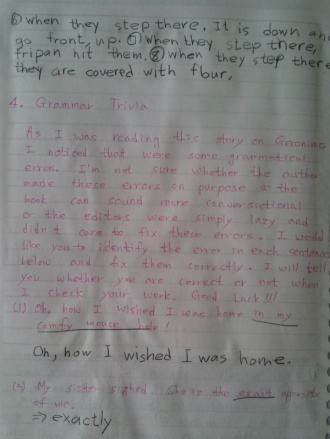 ⑥ When they step there, It is down and
go front, up. ⑦ When they step there,
fripan hit them. ⑧ When they step there
they are covered with flour.
4. Grammar Trivia
As I was reading this story on Geronimo
I noticed that were some grammatical
errors. I'm not sure whether the author
made these errors on purpose so the
book can sound more conversational
or the editors were simply lazy and
didn't care to fix these errors. I would
like you to identify the error in each sentence
below and fix them correctly. I will tell
you whether you are correct or not when
I check your work. Good Luck!!!
(1) Oh, how I wished I was home in my
comfy mouse hole!
Oh, how I wished I was home.
(2) My sister sighed. She is the exact opposite
of me.
⇒ exactly